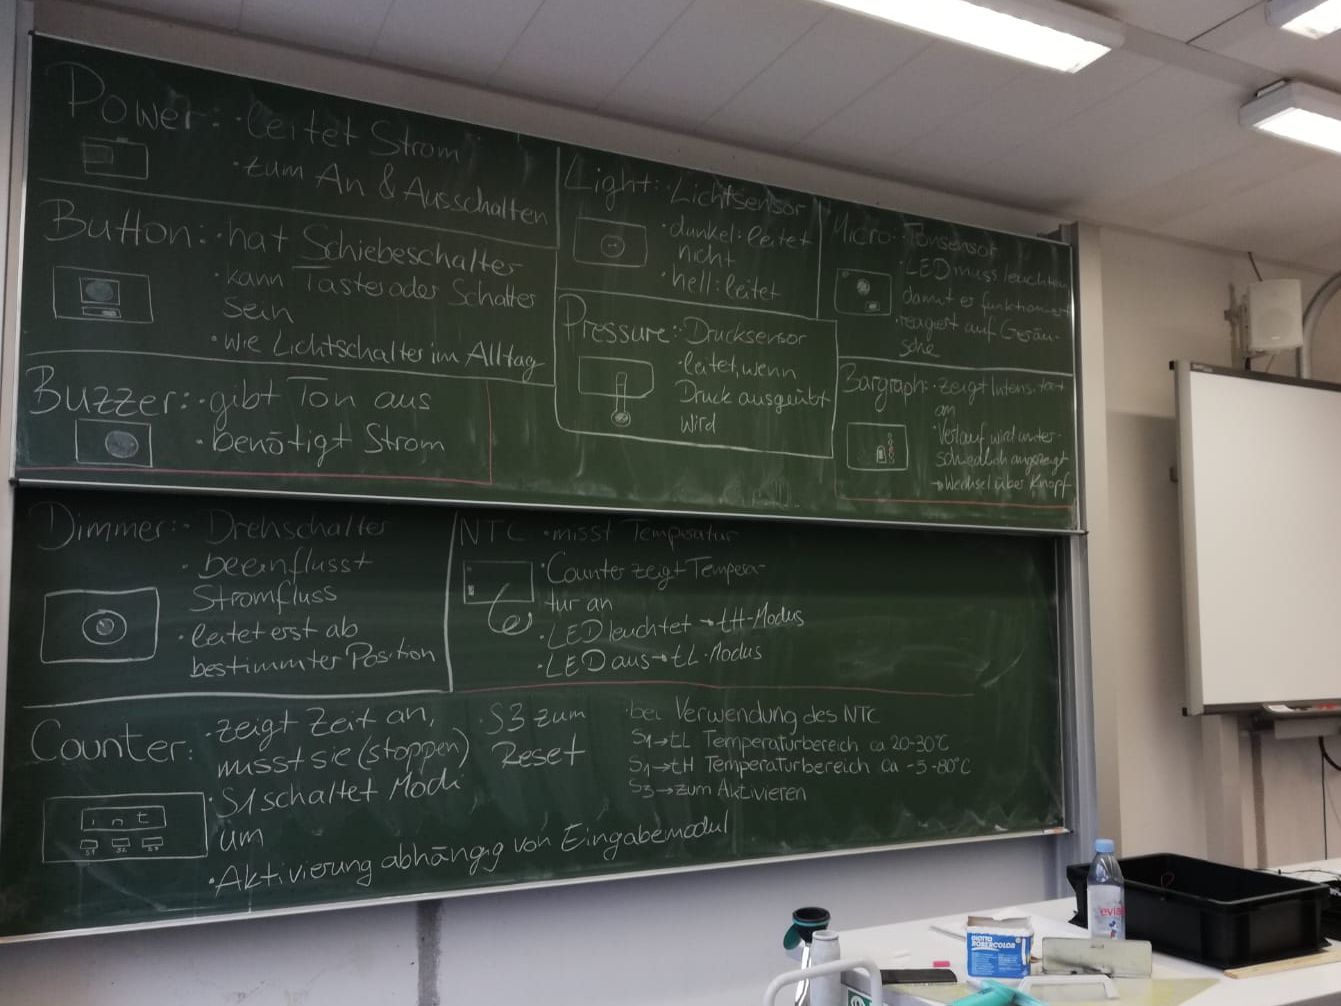 Power: · leitet Strom
· zum An & Ausschalten
Button: · hat Schiebeschalter
· kann Taster oder Schalter
sein
· wie Lichtschalter im Alltag
Buzzer: · gibt Ton aus
· benötigt Strom
Light: · Lichtsensor
· dunkel: leitet
nicht
· hell: leitet
Pressure: · Drucksensor
· leitet, wenn
Druck ausgeübt
wird
Micro: · Tonsensor
· LED muss leuchten
damit er funktioniert
· reagiert auf Geräu-
sche
Bargraph: · zeigt Intensität
an
· Verlauf wird unter-
schiedlich angezeigt
→ Wechsel über Knopf
Dimmer: · Drehschalter
· beeinflusst
Stromfluss
· leitet erst ab
bestimmter Position
NTC · misst Temperatur
· Counter zeigt Tempera-
tur an
· LED leuchtet → tH-Modus
· LED aus → tL-Modus
Counter: · zeigt Zeit an,
misst sie (stoppen)
· S1 schaltet Modi
um
· Aktivierung abhängig von Eingabemodul
int
S1 S2 S3
· S3 zum
Reset
· bei Verwendung des NTC
S1→tL Temperaturbereich ca 20-30°C
S1→tH Temperaturbereich ca -5-80°C
S3→zum Aktivieren
evian
GIOTTO
ROBERCOLOR